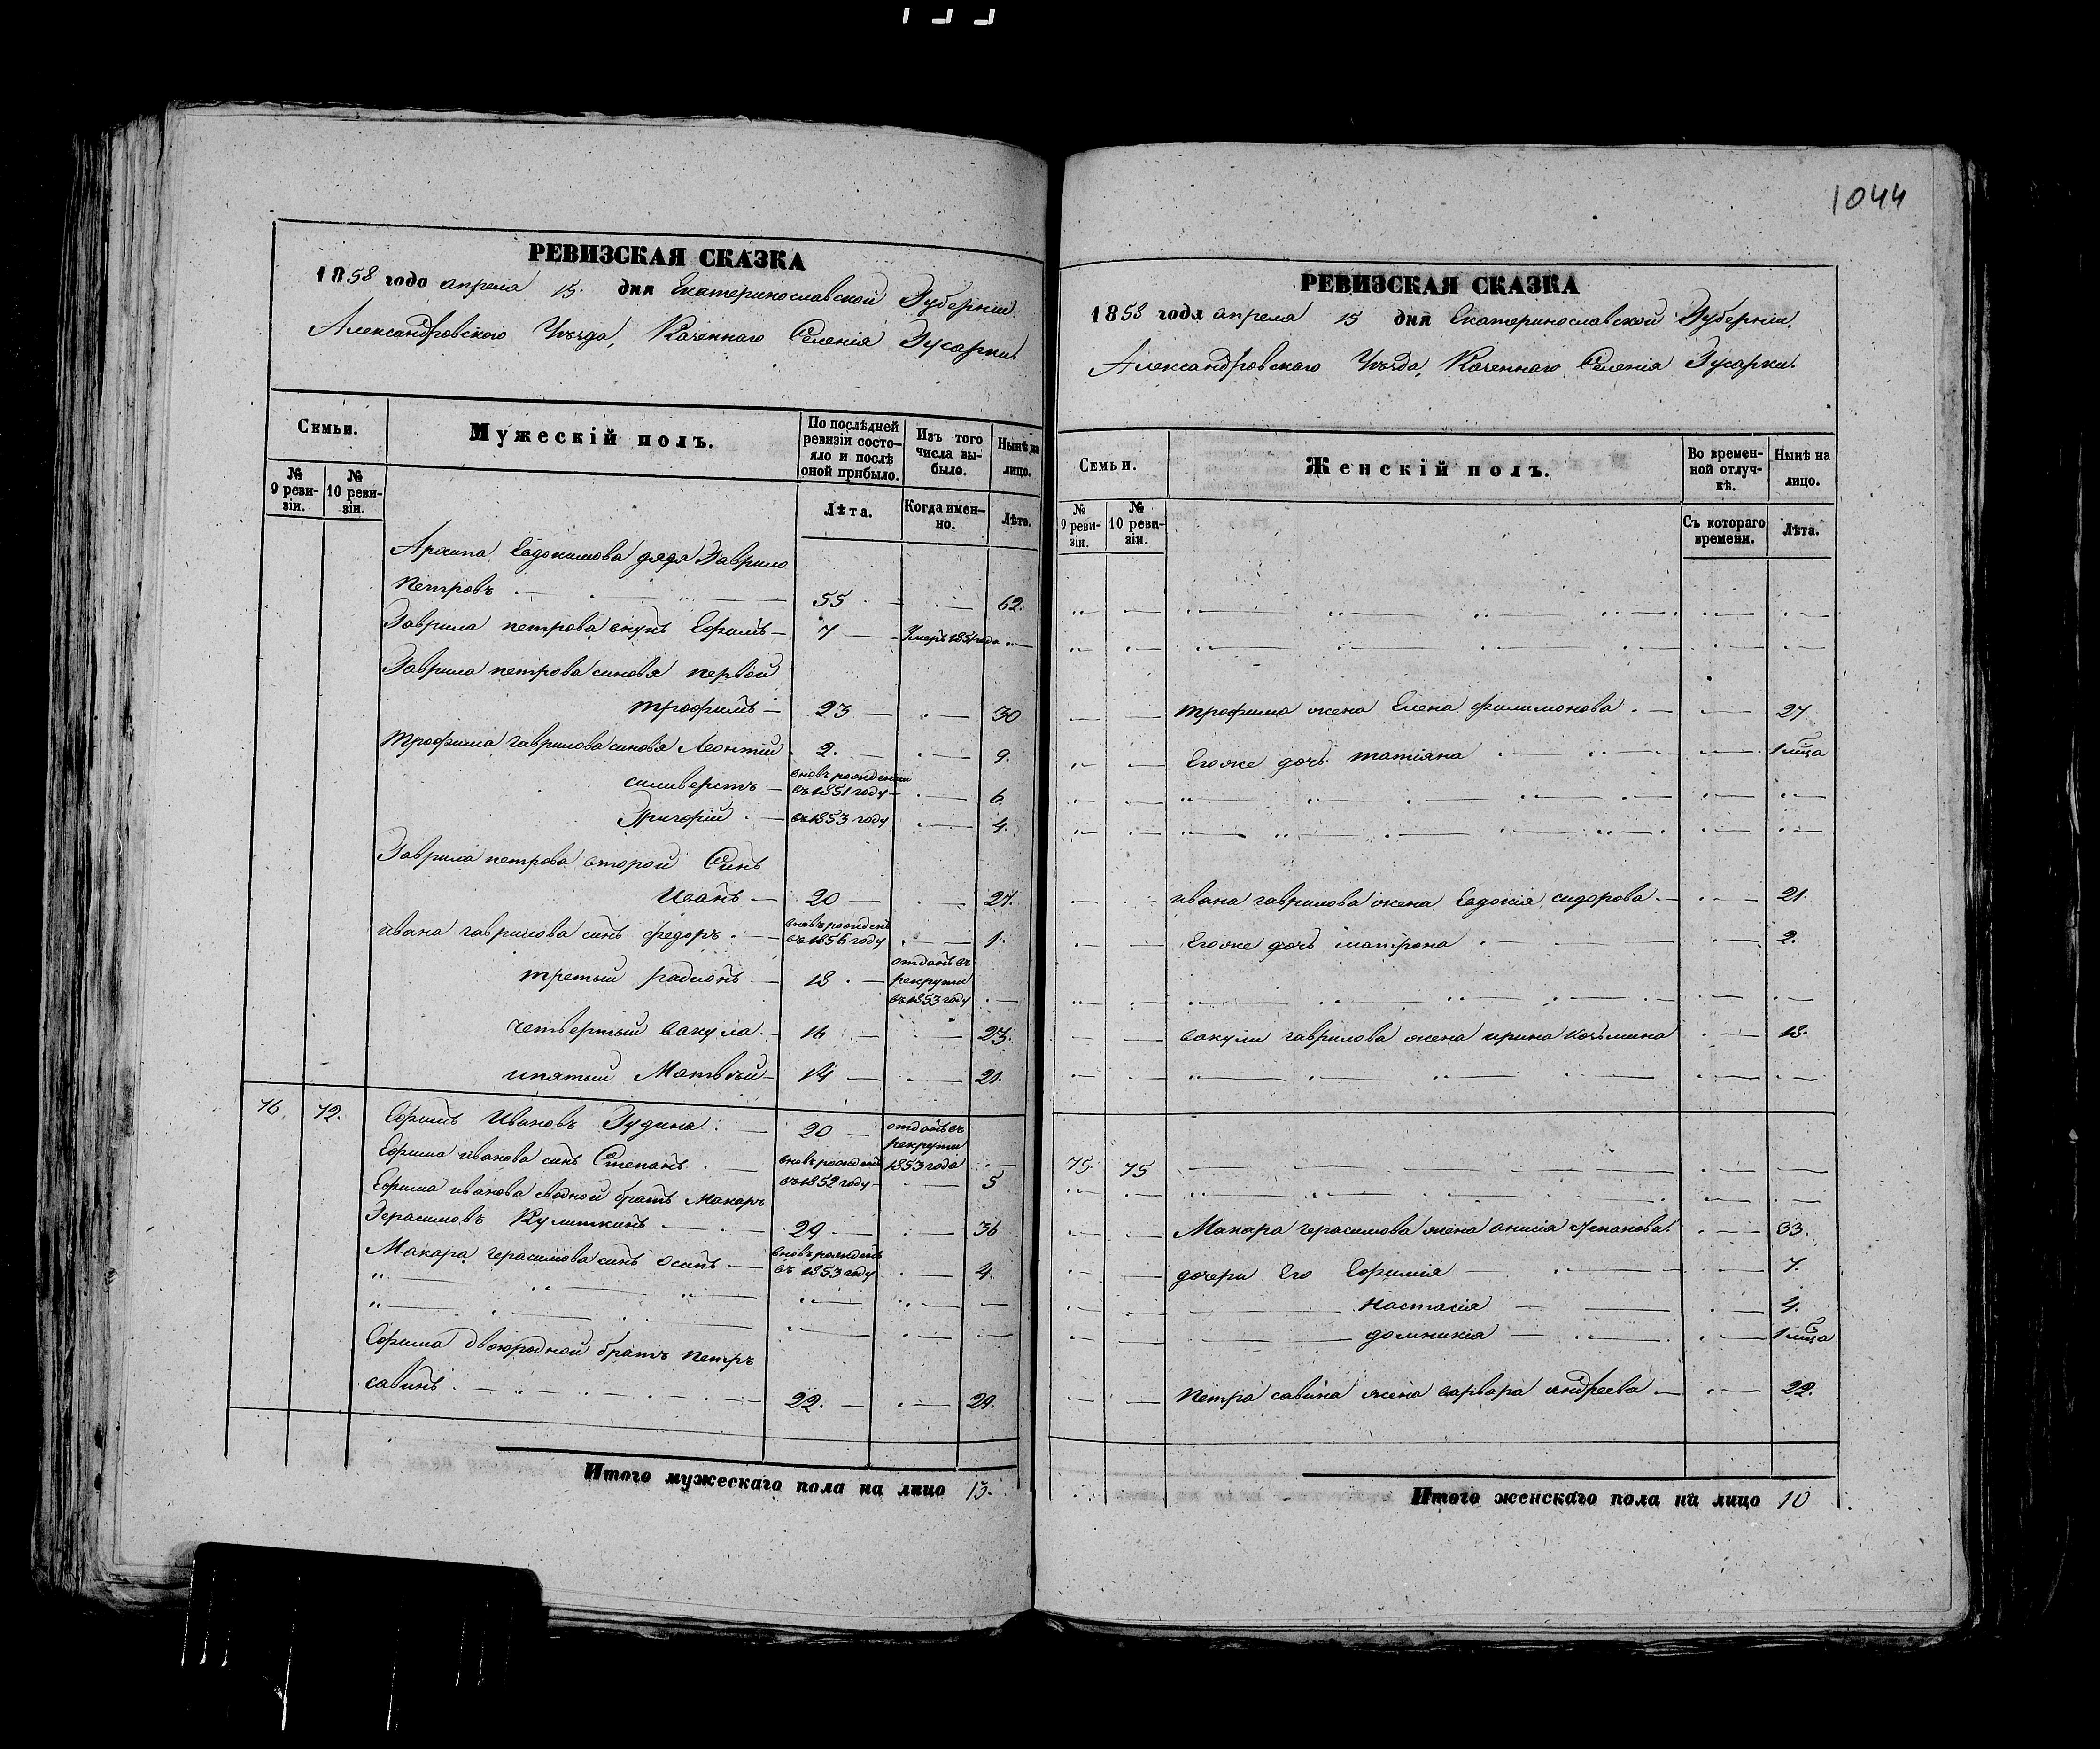 1044
РЕВИЗСКАЯ СКАЗКА
1858 года апреля 15. дня Екатеринославской Губерніи.
Александровского Уѣзда, Казеннаго Селенія Гусарки.
Семьи.
Мужескій полъ.
По послѣдней ревизіи состояло и послѣ оной прибыло.
Изъ того числа выбыло.
Нынѣ на лицо.
№ 9 ревизіи.
№ 10 ревизіи.
Лѣта.
Когда именно.
Лѣта.
Архипа Евдокимова дядя Гаврило
Петровъ 55 62.
Гаврила петрова внукъ Ефимъ 7 Умеръ 1851 года
Гаврила петрова синовя первой
трофимъ 23 30
трофима гаврилова синовя Леонтий 2. 9.
силиверстъ вновъ рожденіи въ 1851 году 6
Григорій въ 1853 году 4.
Гаврила петрова второй Синъ
Иванъ 20 27.
ивана гаврилова синъ федоръ вновъ рожденъ въ 1856 году 1.
третий радионъ 18 отданъ въ рекрути въ 1853 году
четвертый вакула 16 23.
ипятый Матвѣй 14 21.
76. 72. Ефимъ Ивановъ Гудина 20 отданъ въ рекрути 1853 года
Ефима иванова синъ Степанъ вновъ рожденъ въ 1852 году 5
Ефима иванова сводной братъ Макаръ
Герасимовъ 29 36
Макара герасимова синъ Осипъ вновъ рожденъ въ 1853 году 4.
Ефима двоюродной братъ петръ
савинъ 22. 29.
Итого мужескаго пола на лицо 13.
РЕВИЗСКАЯ СКАЗКА
1858 года апреля 15 дня Екатеринославской Губерніи.
Александровскаго Уѣзда, Казеннаго Селенія Гусарки.
Семьи.
Женскій полъ.
Во временной отлучкѣ.
Нынѣ на лицо.
№ 9 ревизіи.
№ 10 ревизіи.
Съ котораго времени.
Лѣта.
трофима жена Елена филимонова 27
Егоже дочь татіяна 1 мѣца
ивана гаврилова жена Евдокія сидорова 21.
Егоже дочь матрона 2.
вакули гаврилова жена ирина козьмина 18.
75. 75
Макара герасимова жена анисія степанова 33.
дочери Его Ефимия 7.
настасія 4.
домникія 1 мѣца
петра савина жена варвара андреева 22.
Итого женскаго пола на лицо 10